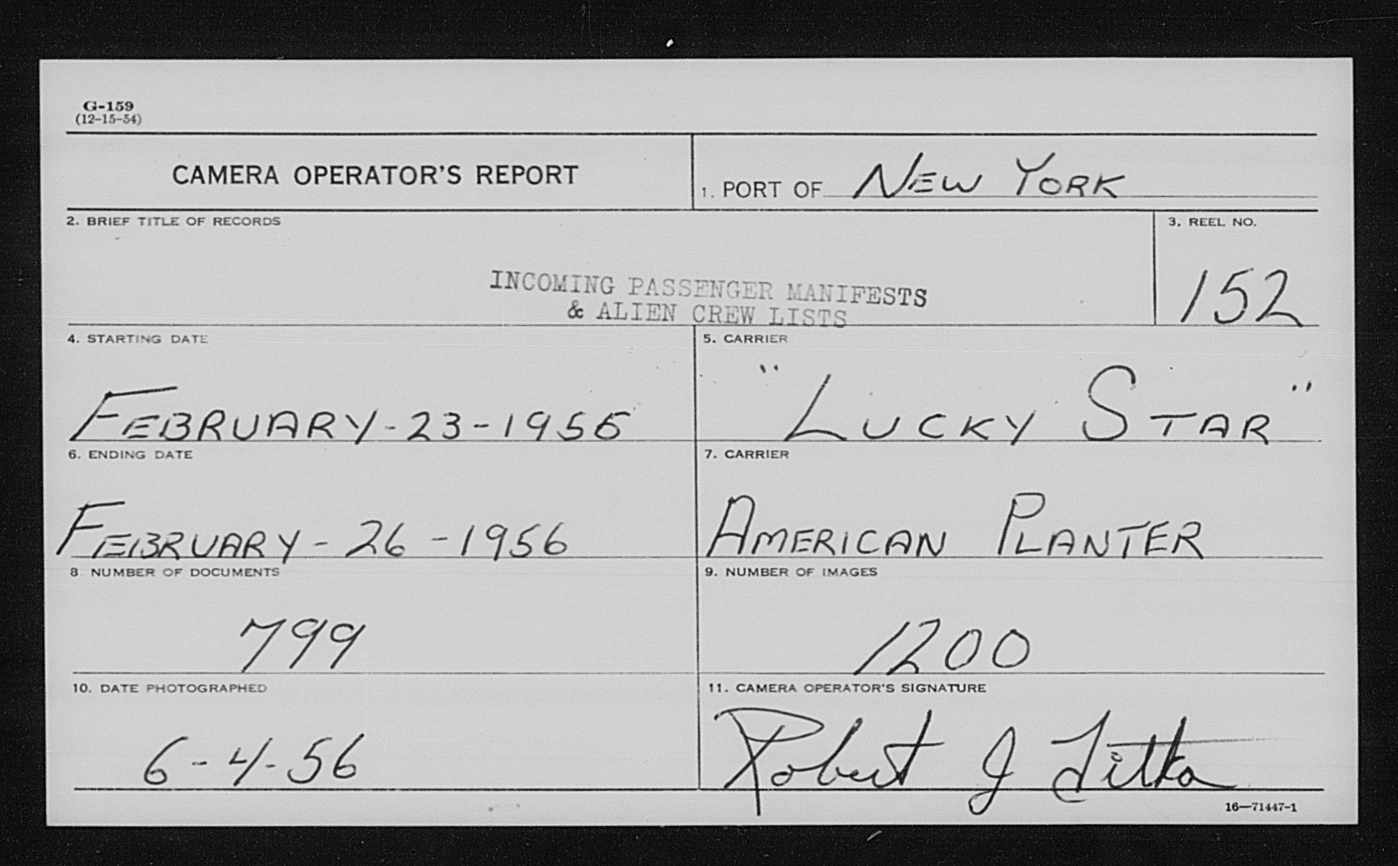 G-159
(12-15-54)
CAMERA OPERATOR'S REPORT
1. PORT OF NEW YORK
2. BRIEF TITLE OF RECORDS
INCOMING PASSENGER MANIFESTS
& ALIEN CREW LISTS
3. REEL NO.
152
4. STARTING DATE
FEBRUARY-23-1956
5. CARRIER
"LUCKY STAR"
6. ENDING DATE
FEBRUARY-26-1956
7. CARRIER
AMERICAN PLANTER
8 NUMBER OF DOCUMENTS
799
9. NUMBER OF IMAGES
1200
10. DATE PHOTOGRAPHED
6-4-56
11. CAMERA OPERATOR'S SIGNATURE
Robert J
16—71447-1